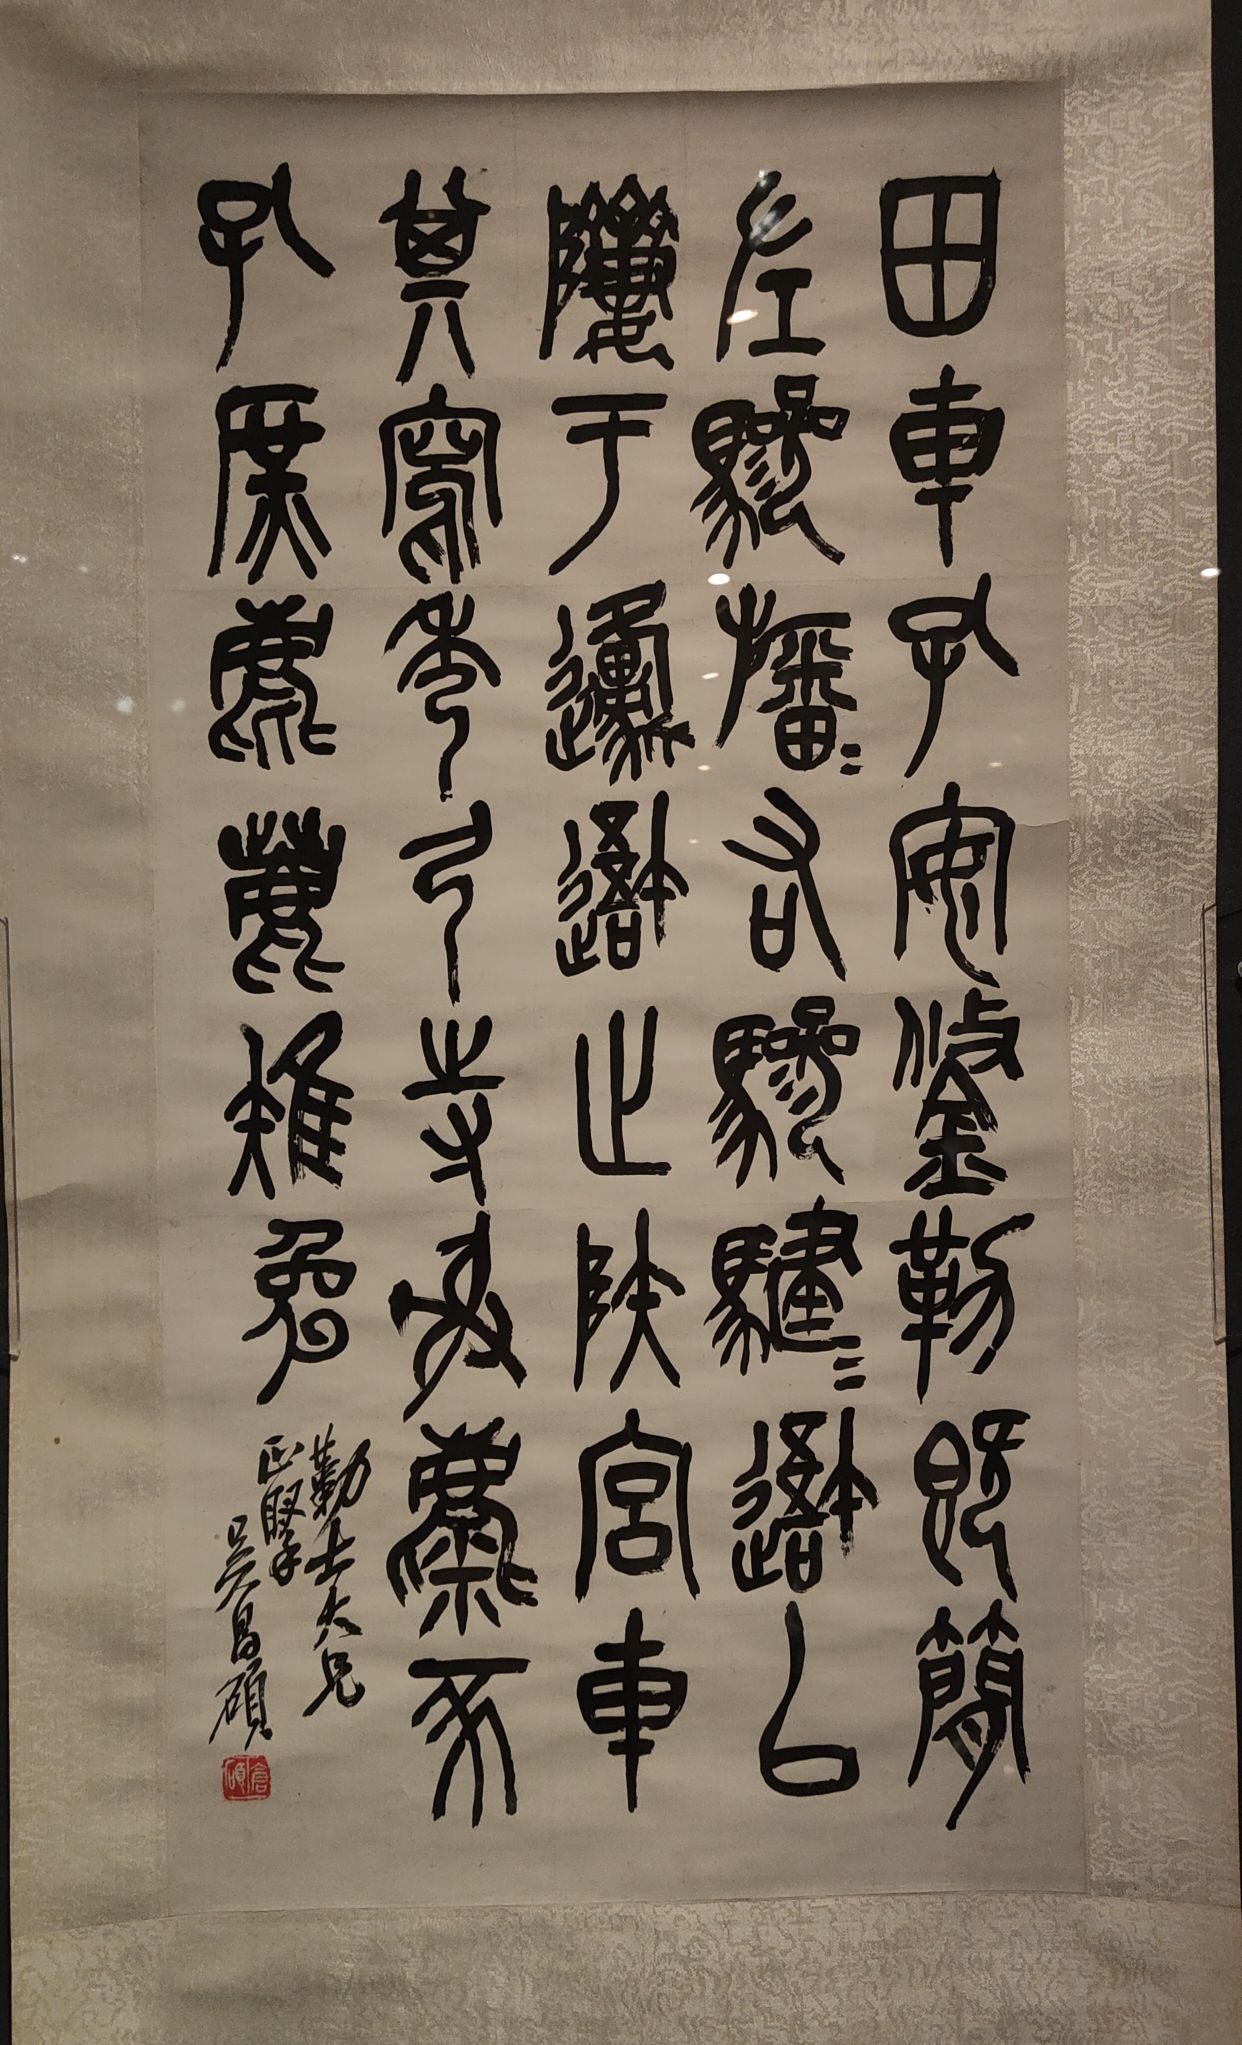 田車孔安鋚勒既簡
左驂旛〻右驂騝〻䢒以
隮于邍䢒止陕宮車
其寫秀弓寺射麋豕
孔庶麀鹿雉兔
勤士大兄
正掔
吳昌碩
倉碩